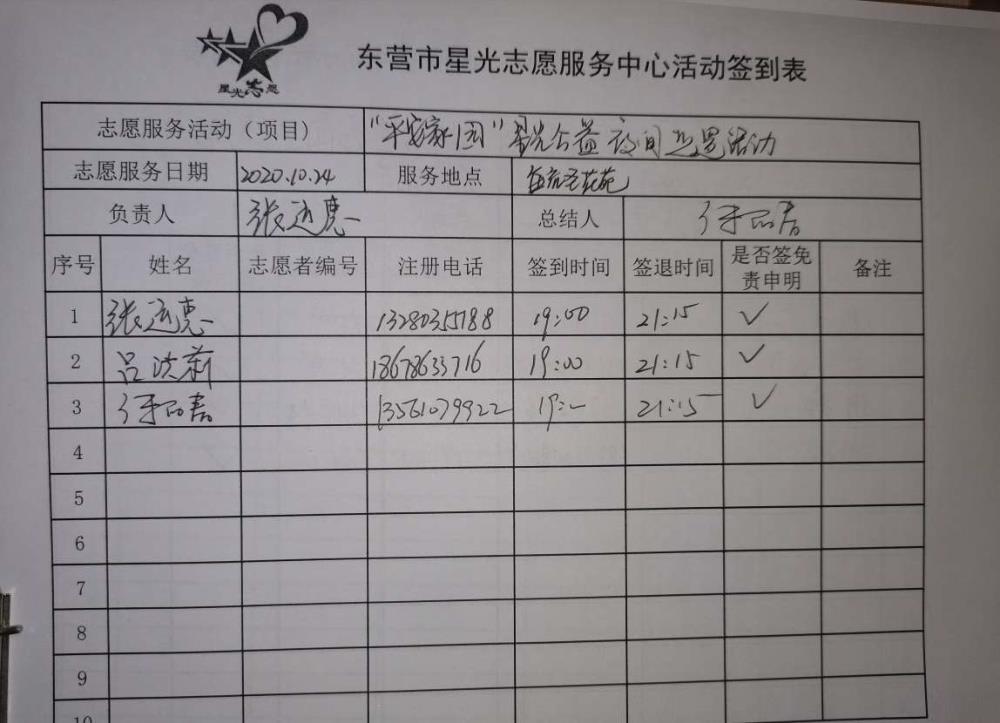 星光志愿
东营市星光志愿服务中心活动签到表
志愿服务活动（项目） "平安家园"星光公益夜间巡逻活动
志愿服务日期 2020.10.24 服务地点 花苑
负责人 张连惠 总结人
序号 姓名 志愿者编号 注册电话 签到时间 签退时间 是否签免责申明 备注
1 张连惠 13280355188 19:00 21:15 ✓
2 吕洪莉 18678633716 19:00 21:15 ✓
3 13561079922 19: 21:15 ✓
4
5
6
7
8
9
10